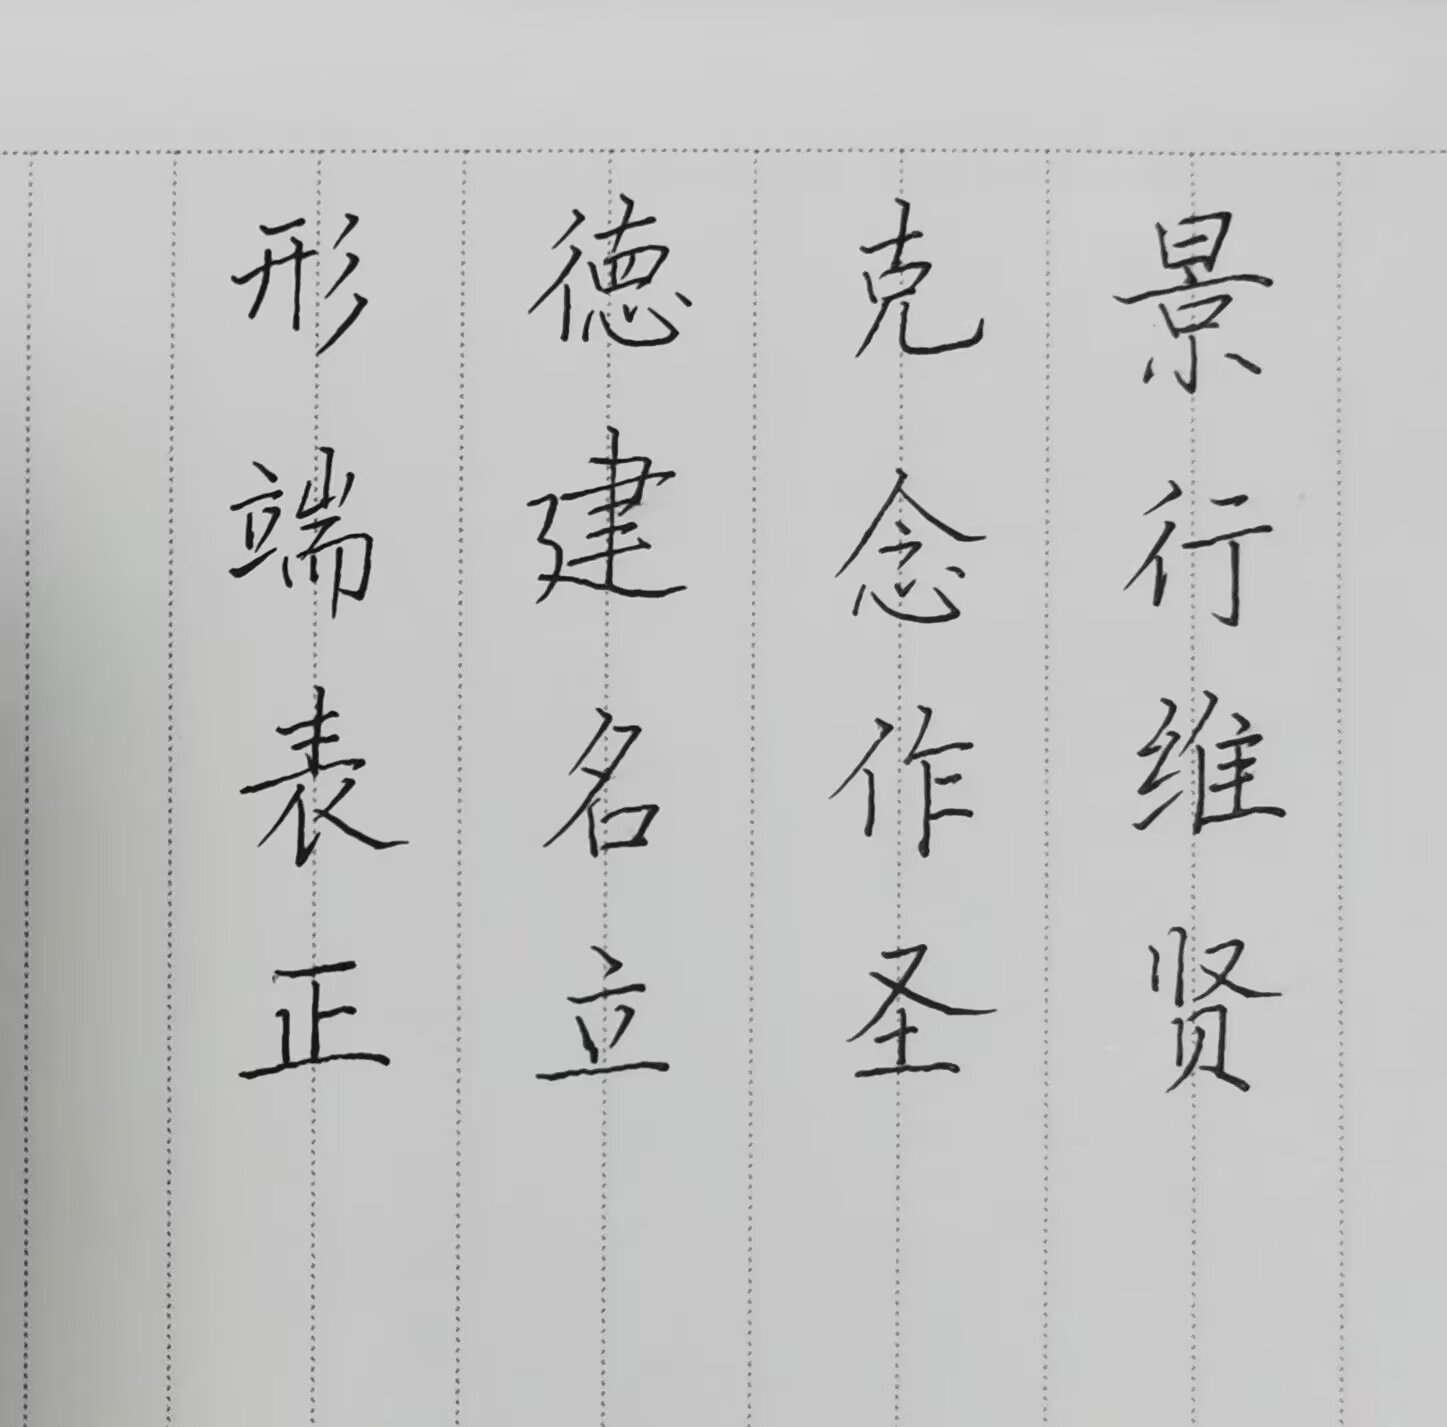 景行维贤
克念作圣
德建名立
形端表正